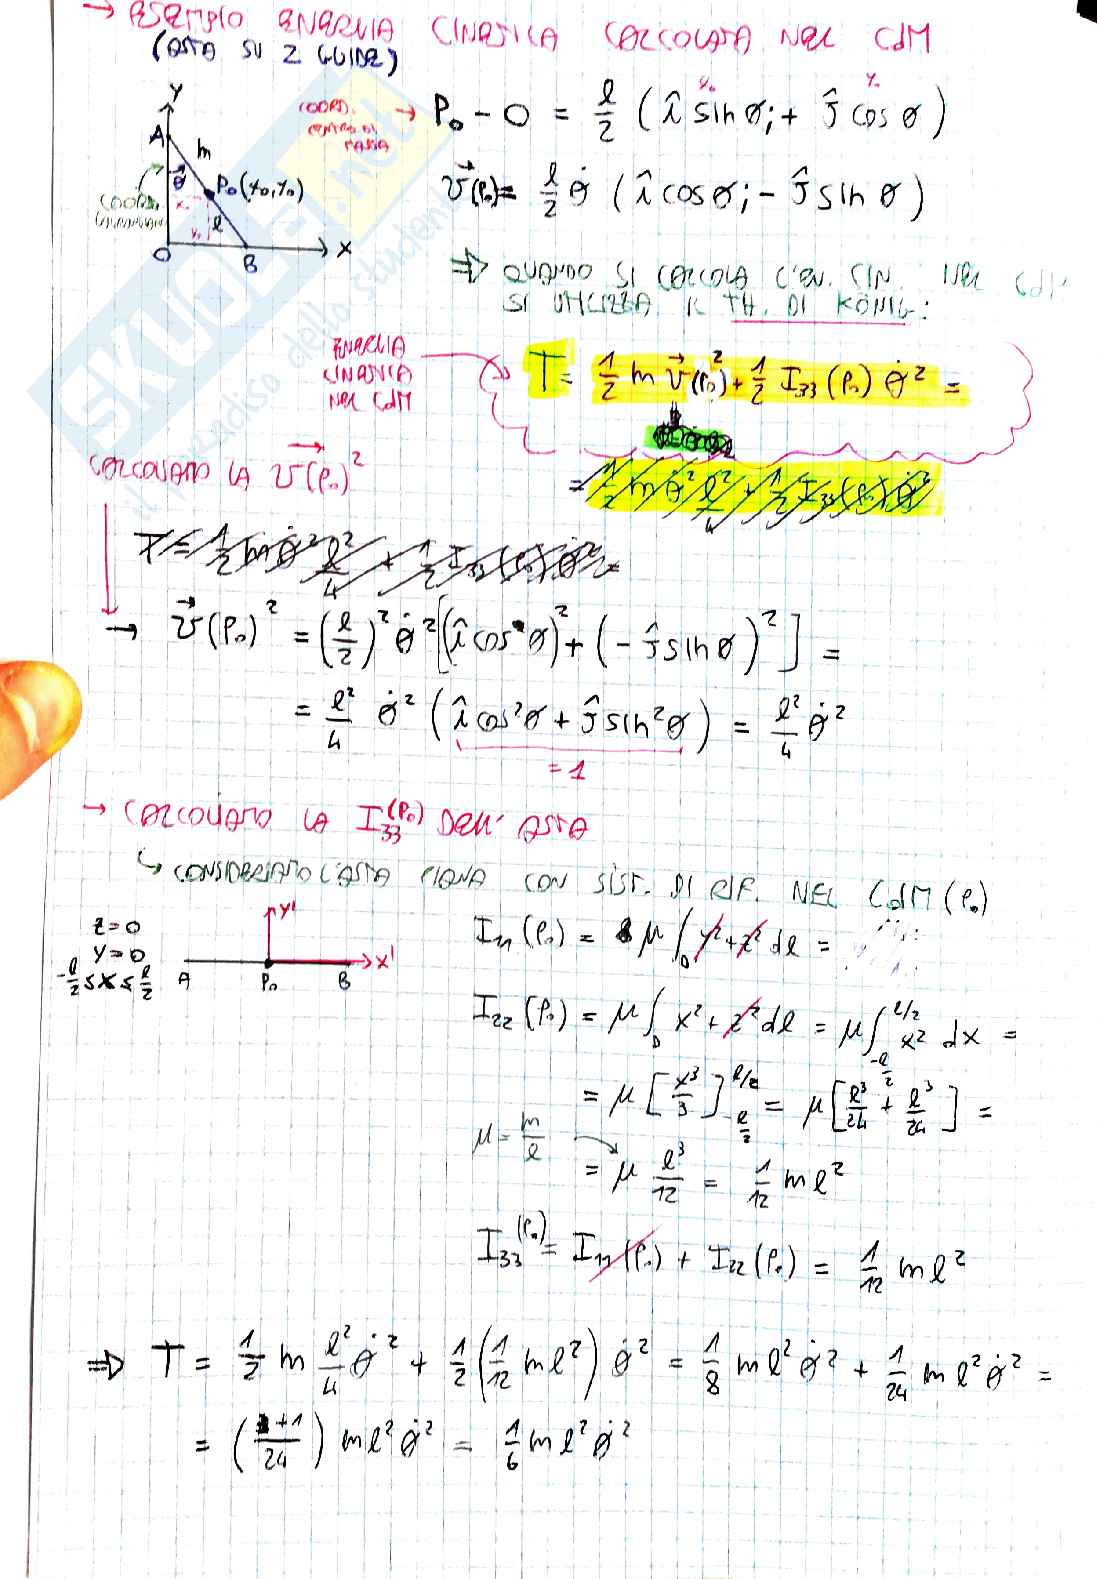 → ESEMPIO ENERGIA CINETICA CALCOLATA NEL CdM
(ASTA SU 2 GUIDE)
Y
A
m
θ
P₀(x₀,y₀)
COORD.
x₀
y₀
l
O
B
X
COORD. CENTRO DI MASSA → P₀ - O = l/2 ( î sinθ; + ĵ cosθ )
x₀ y₀
v⃗(P₀) = l/2 θ̇ ( î cosθ; - ĵ sinθ )
⇒ QUANDO SI CALCOLA L'EN. CIN. NEL CdM
SI UTILIZZA IL TH. DI KÖNIG:
ENERGIA
CINETICA
NEL CdM
T = 1/2 m v⃗(P₀)² + 1/2 I₃₃(P₀) θ̇² =
= 1/2 m θ̇² l²/4 + 1/2 I₃₃(P₀) θ̇²
CALCOLIAMO LA v⃗(P₀)²
T = 1/2 m θ̇² l²/4 + 1/2 I₃₃(P₀) θ̇² =
→ v⃗(P₀)² = (l/2)² θ̇² [(î cosθ)² + (- ĵ sinθ)²] =
= l²/4 θ̇² ( î cos²θ + ĵ sin²θ ) = l²/4 θ̇²
= 1
→ CALCOLIAMO LA I₃₃(P₀) DELL'ASTA
↳ CONSIDERIAMO L'ASTA PIANA CON SIST. DI RIF. NEL CdM (P₀)
z=0
y=0
-l/2 ≤ x ≤ l/2
y'
x'
A P₀ B
I₁₁(P₀) = μ ∫_D y² + z² dl =
I₂₂(P₀) = μ ∫_D x² + z² dl = μ ∫_{-l/2}^{l/2} x² dx =
= μ [x³/3]_{-l/2}^{l/2} = μ [l³/24 + l³/24] =
μ = m/l
= μ l³/12 = 1/12 m l²
I₃₃(P₀) = I₁₁(P₀) + I₂₂(P₀) = 1/12 m l²
⇒ T = 1/2 m l²/4 θ̇² + 1/2 (1/12 m l²) θ̇² = 1/8 m l² θ̇² + 1/24 m l² θ̇² =
= (3+1/24) m l² θ̇² = 1/6 m l² θ̇²
SKUOLA.net
il paradiso dello studente